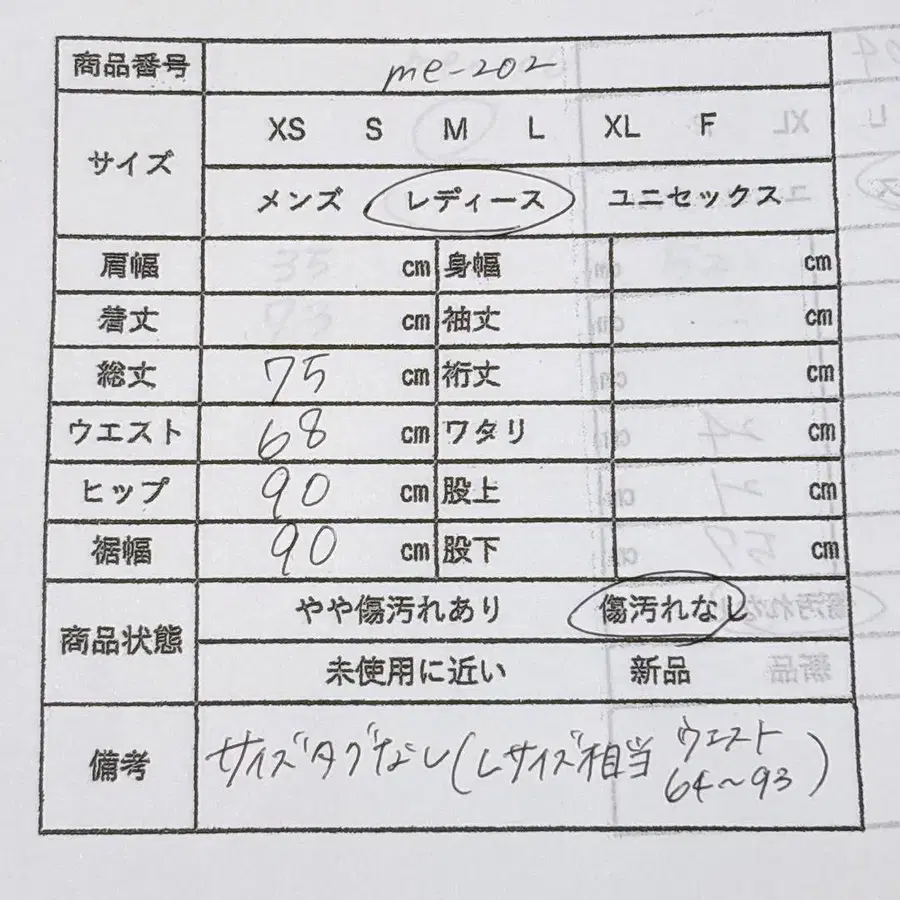 商品番号 me-202
サイズ XS S M L XL F
メンズ レディース ユニセックス
肩幅 cm 身幅 cm
着丈 cm 袖丈 cm
総丈 75 cm 裄丈 cm
ウエスト 68 cm ワタリ cm
ヒップ 90 cm 股上 cm
裾幅 90 cm 股下 cm
商品状態 やや傷汚れあり 傷汚れなし
未使用に近い 新品
備考 サイズタグなし(Lサイズ相当 ウエスト
64〜93)